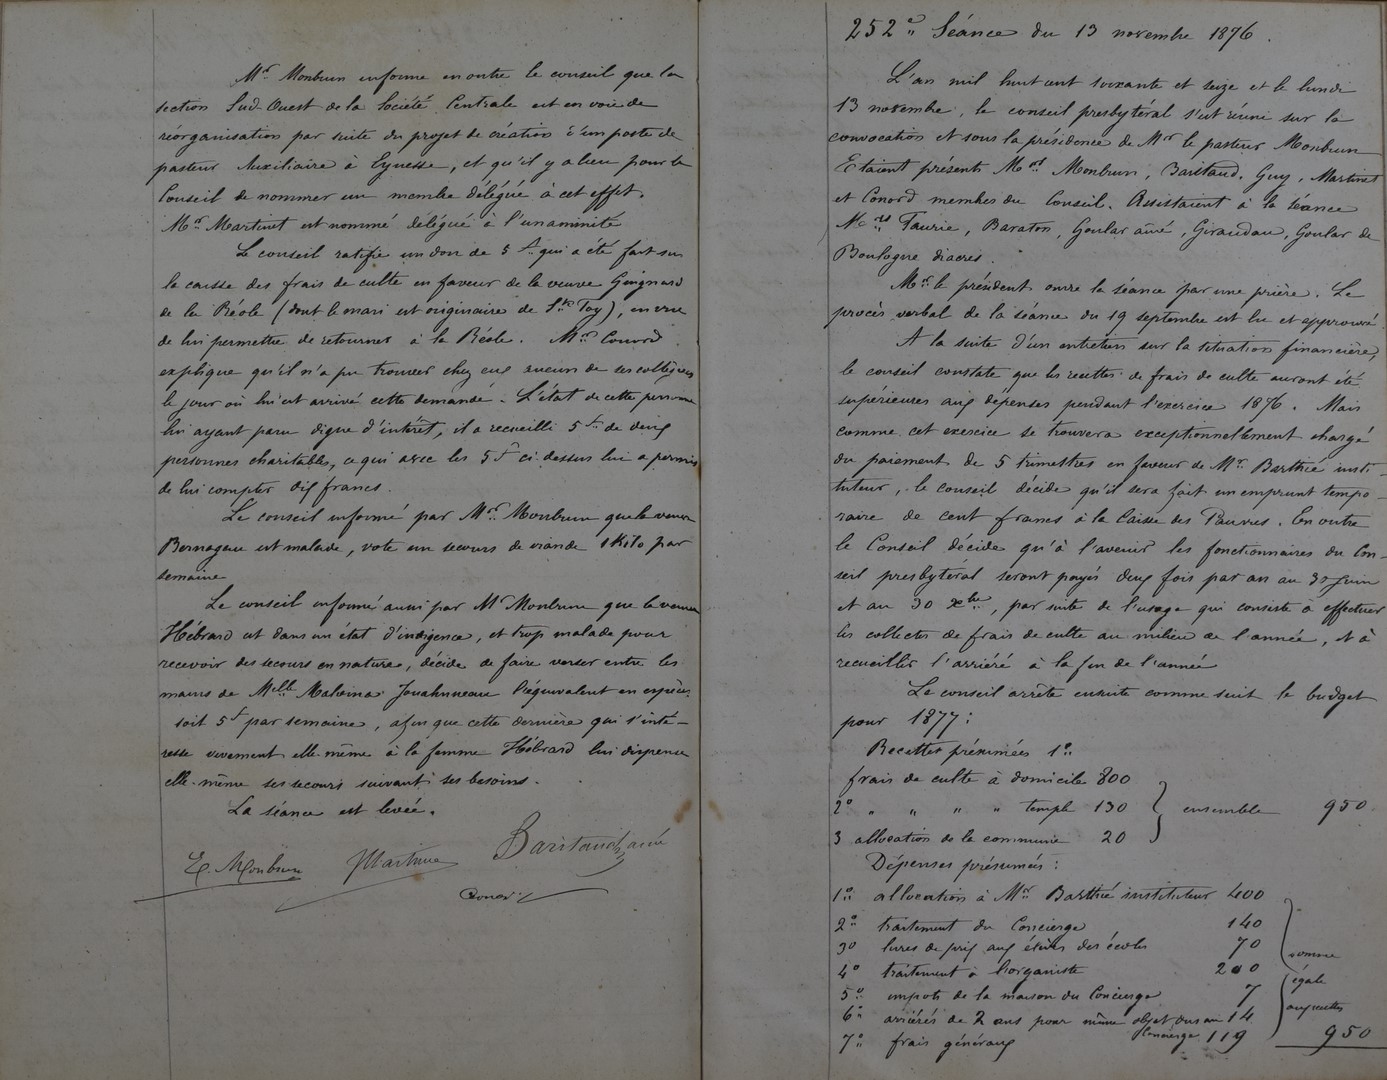 Mr Monbrun informe en outre le conseil que la
section Sud-Ouest de la Société Centrale est en voie de
réorganisation par suite du projet de création d'un poste de
pasteur Auxiliaire à Eynesse, et qu'il y a lieu pour le
Conseil de nommer un membre délégué à cet effet.
Mr Martinet est nommé délégué à l'unanimité
Le conseil ratifie un don de 5 f. qui a été fait sur
la caisse des frais de culte en faveur de la veuve Guignard
de la Réole (dont le mari est originaire de Ste Foy), en vue
de lui permettre de retourner à la Réole. Mr Conord
explique qu'il n'a pu trouver chez eux aucun de ses collègues
le jour où lui est arrivé cette demande. L'état de cette personne
lui ayant paru digne d'intérêt, il a recueilli 5 f. de deux
personnes charitables, ce qui avec les 5 f ci-dessus lui a permis
de lui compter dix francs.
Le conseil informé par Mr Monbrun que la veuve
Bernageau est malade, vote un secours de viande 1 Kilo par
semaine
Le conseil informé aussi par Mr Monbrun que la veuve
Hébrard est dans un état d'indigence, et trop malade pour
recevoir des secours en nature, décide de faire verser entre les
mains de Melle Malvina Jouahnneau l'équivalent en espèces
soit 5 f par semaine, afin que cette dernière qui s'inté-
resse vivement elle-même à la femme Hébrard lui dispense
elle-même ses secours suivant ses besoins.
La séance est levée.
E. Monbrun Martinet Baritaud ainé
Conord
252e Séance du 13 novembre 1876.
L'an mil huit cent soixante et seize et le lundi
13 novembre, le conseil presbytéral s'est réuni sur la
convocation et sous la présidence de Mr le pasteur Monbrun
Etaient présents Mrs Monbrun, Baritaud, Guy, Martinet
et Conord membres du Conseil. Assistaient à la séance
Mrs Faurie, Baraton, Goular aîné, Giraudau, Goular de
Boulogne diacres.
Mr le président ouvre la séance par une prière. Le
procès verbal de la séance du 19 septembre est lu et approuvé
A la suite d'un entretien sur la situation financière,
le conseil constate que les recettes de frais de culte auront été
supérieures aux dépenses pendant l'exercice 1876. Mais
comme cet exercice se trouvera exceptionnellement chargé
du paiement de 5 trimestres en faveur de Mr Barthié insti-
tuteur, le conseil décide qu'il sera fait un emprunt tempo-
raire de cent francs à la Caisse des Pauvres. En outre
le Conseil décide qu'à l'avenir les fonctionnaires du Con-
seil presbytéral seront payés deux fois par an au 30 Juin
et au 30 Xbre, par suite de l'usage qui consiste à effectuer
les collectes de frais de culte au milieu de l'année, et à
recueillir l'arriéré à la fin de l'année
Le conseil arrête ensuite comme suit le budget
pour 1877:
Recettes présumées 1°
frais de culte à domicile 800
2° " " " " temple 130 } ensemble 950
3 allocation de la commune 20
Dépenses présumés:
1° allocation à Mr Barthié instituteur 400
2° traitement du Concierge 140
3° livres de prix aux élèves des écoles 70
somme
4° traitement à l'organiste 200
égale
5° impots de la maison du Concierge 7
aux recettes
6° arriérés de 2 ans pour même objet 14
Concierge
7° frais généraux 119 950